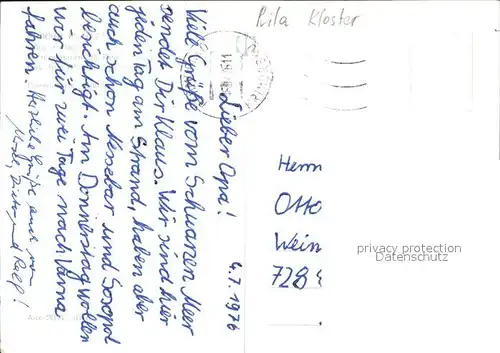 Rila Kloster
4.7.1976
Lieber Opa!
Viele Grüße vom Schwarzen Meer
sendet Dir Klaus. Wir sind hier
jeden Tag am Strand, haben aber
auch schon Nessebar und Sosopol
besichtigt. Am Donnerstag wollen
wir für zwei Tage nach Varna
fahren. Herzliche Grüße auch von
Dieter und
Herrn
Otto
Wein
728
privacy protection
Datenschutz